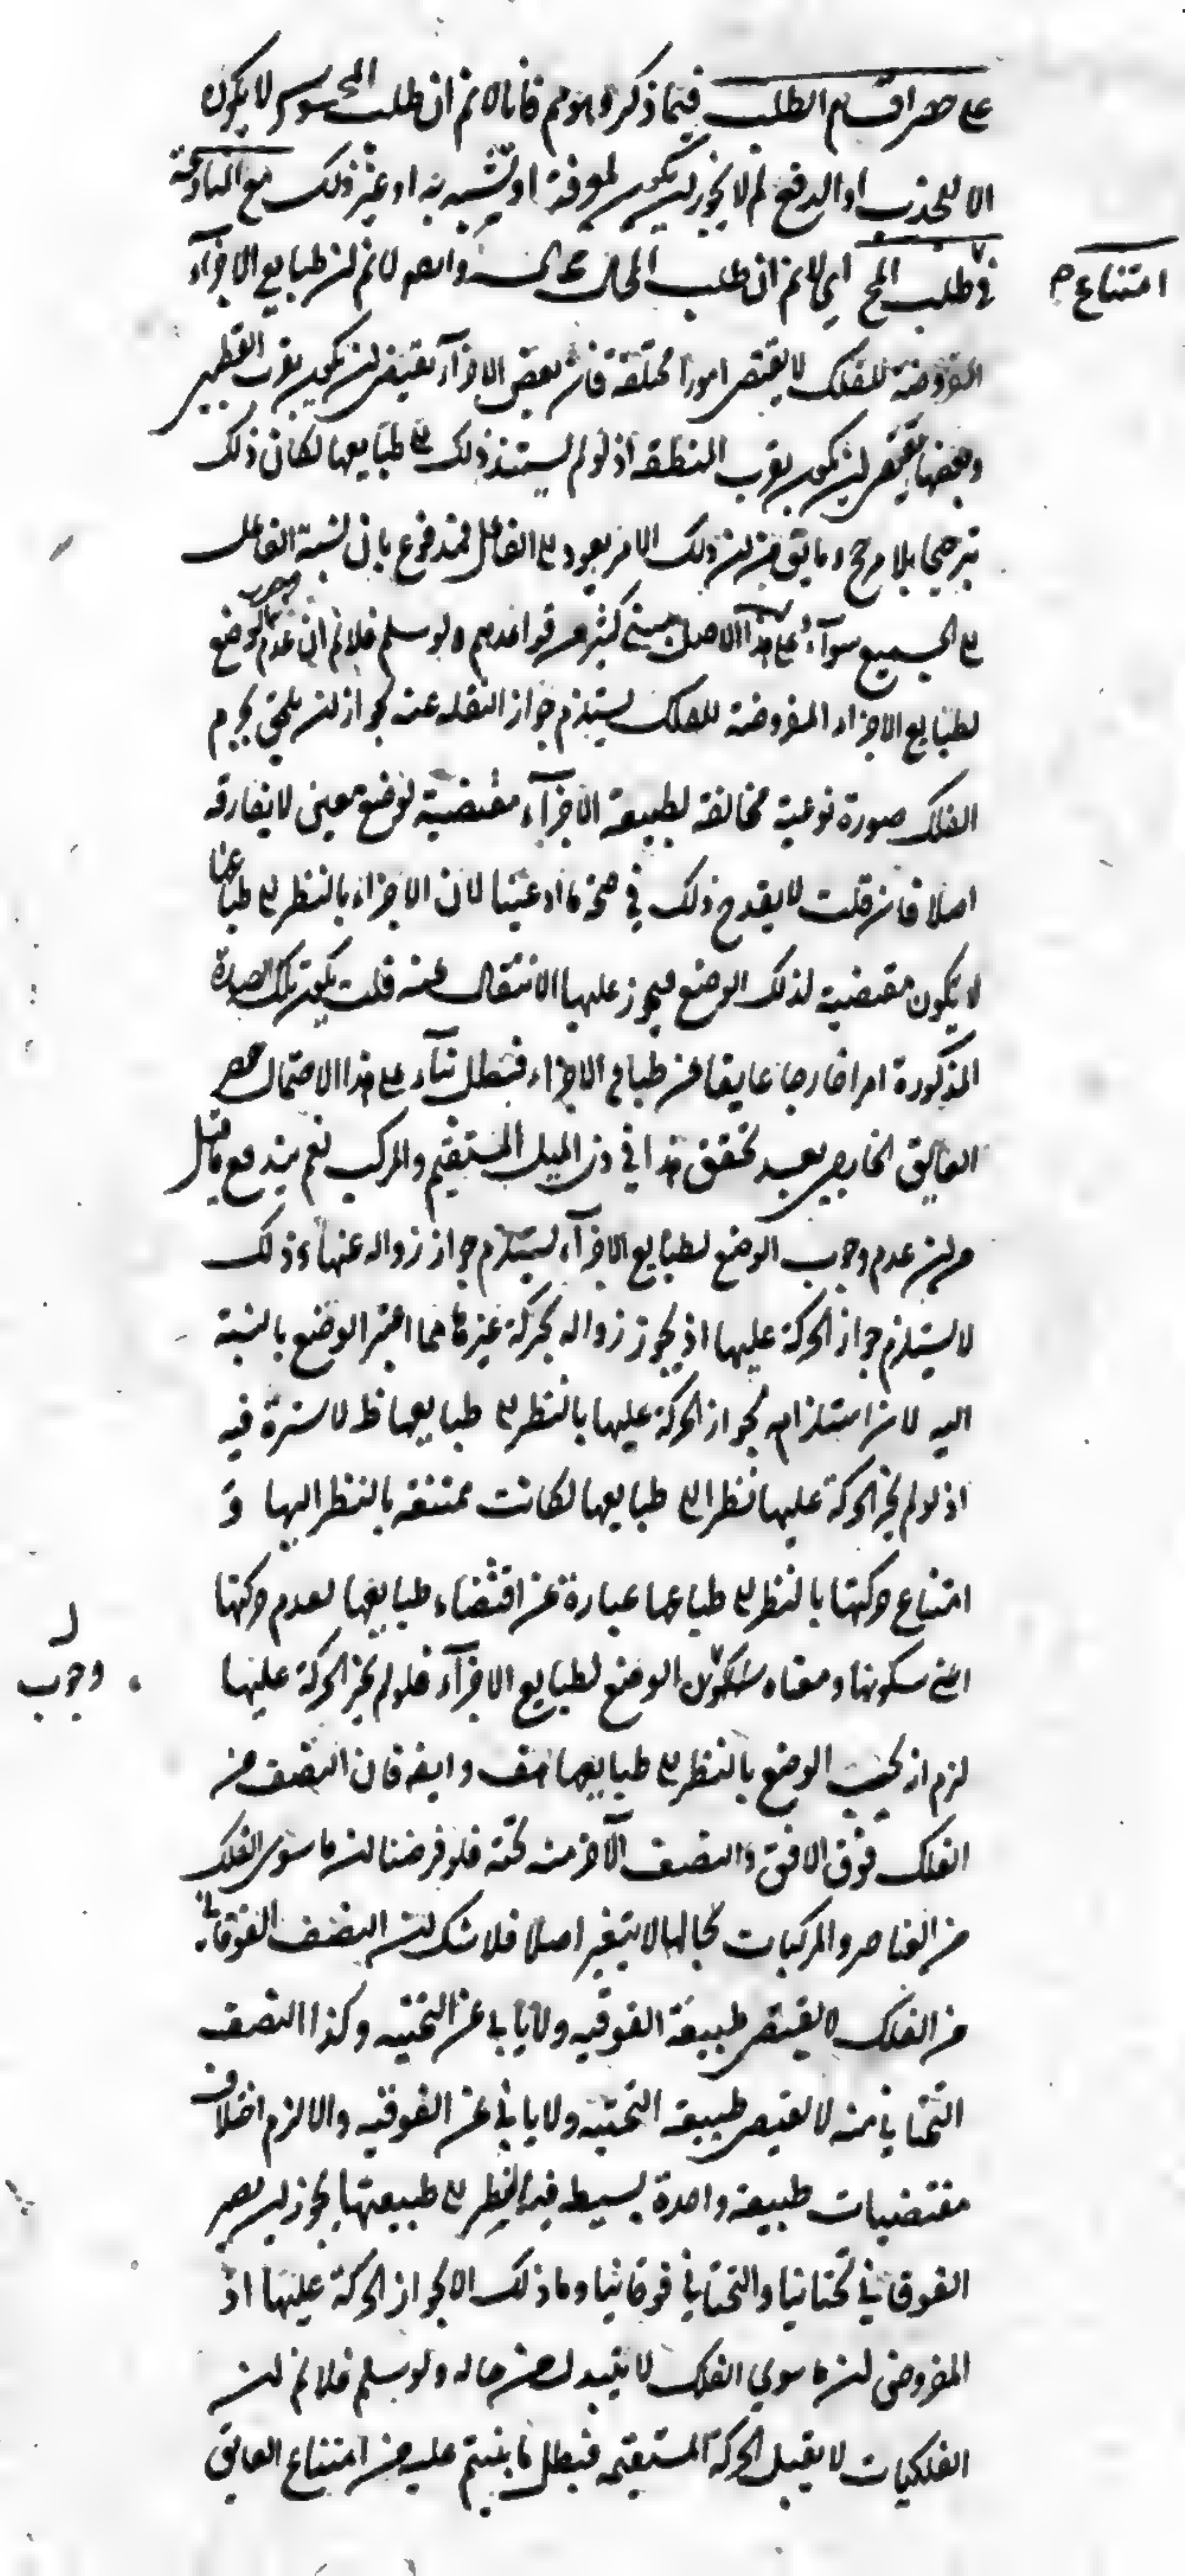 على حصر اقسام الطلب فيما ذكروه وهو مم فانا لا نم ان طلب المحسوس لا يكون
الا للجذب او الدفع لم لا يجوز ان يكون لمعرفة او تشبه به او غير ذلك مع المنازعة
في طلب المح اي لا نم ان طلب المحال وايضا لا نم ان طبايع الاجزآء
امتناع
المفروضة للفلك لا يقتضى امورا مختلفة فان بعض الاجزآء يقتضى ان يكون بقرب القطبين
وبعضها يقتضى ان يكون بقرب المنطقة اذ لو لم يستند ذلك الى طبايعها لكان ذلك
ترجيحا بلا مرجح وما يق من ان ذلك الامر يعود الى الفاعل فمندفع بان نسبة الفاعل
الى الجميع سوآء وعلى هذا الاصل يبتنى كثير من قواعدهم ولو سلم فلا نم ان عدم وجوب الوضع
لطبايع الاجزاء المفروضة للفلك يستلزم جواز النقلة عنه لجواز ان يلحق بجرم
الفلك صورة نوعية مخالفة لطبيعة الاجزآء مقتضية لوضع معين لا يفارقه
اصلا فان قلت لا يقدح ذلك في صحة ما ادعينا لان الاجزاء بالنظر الى طباعها
لا يكون مقتضية لذلك الوضع فيجوز عليها الانتقال عنه قلت يكون تلك الصورة
المذكورة امرا خارجا عايقا عن طباع الاجزاء فتبطل بنآء على هذا الاحتمال حصر
العايق الخارجى بعيد تحقق هذا في ذى الميل المستقيم والمركب نعم يندفع ما قيل
من ان عدم وجوب الوضع لطبايع الاجزآء يستلزم جواز زواله عنها وذلك
لا يستلزم جواز الحركة عليها اذ يجوز زواله بحركة غيرها مما اعتبر الوضع بالنسبة
اليه لان استلزامه لجواز الحركة عليها بالنظر الى طبايعها ظ لا سترة فيه
اذ لو لم يجز الحركة عليها نظرا الى طبايعها لكانت ممتنعة بالنظر اليها و
امتناع حركتها بالنظر الى طباعها عبارة عن اقتضاء طبايعها لعدم حركتها
اعنى سكونها ومعناه الوضع لطبايع الاجزآء فلو لم يجز الحركة عليها
وجوب
لزم ان يجب الوضع بالنظر الى طبايعها هف وايضا فان النصف من
الفلك فوق الافق والنصف الآخر منه تحته فلو فرضنا ان ما سوى الفلك
من العناصر والمركبات بحالها لا يتغير اصلا فلا شك ان النصف الفوقانى
من الفلك لا يقتضى طبيعة الفوقية ولا يابى عن التحتية وكذا النصف
التحتانى منه لا يقتضى طبيعة التحتية ولا يابى عن الفوقية والا لزم اختلاف
مقتضيات طبيعة واحدة بسيطة فبالنظر الى طبيعتها يجوز ان يصير
الفوقانى تحتانيا والتحتانى فوقانيا وما ذلك الا بجواز الحركة عليها اذ
المفروض ان ما سوى الفلك لا يتبدل عن حاله ولو سلم فلا نم ان
الفلكيات لا يقبل الحركة المستقيمة فبطل ما بنيتم عليه من امتناع العايق